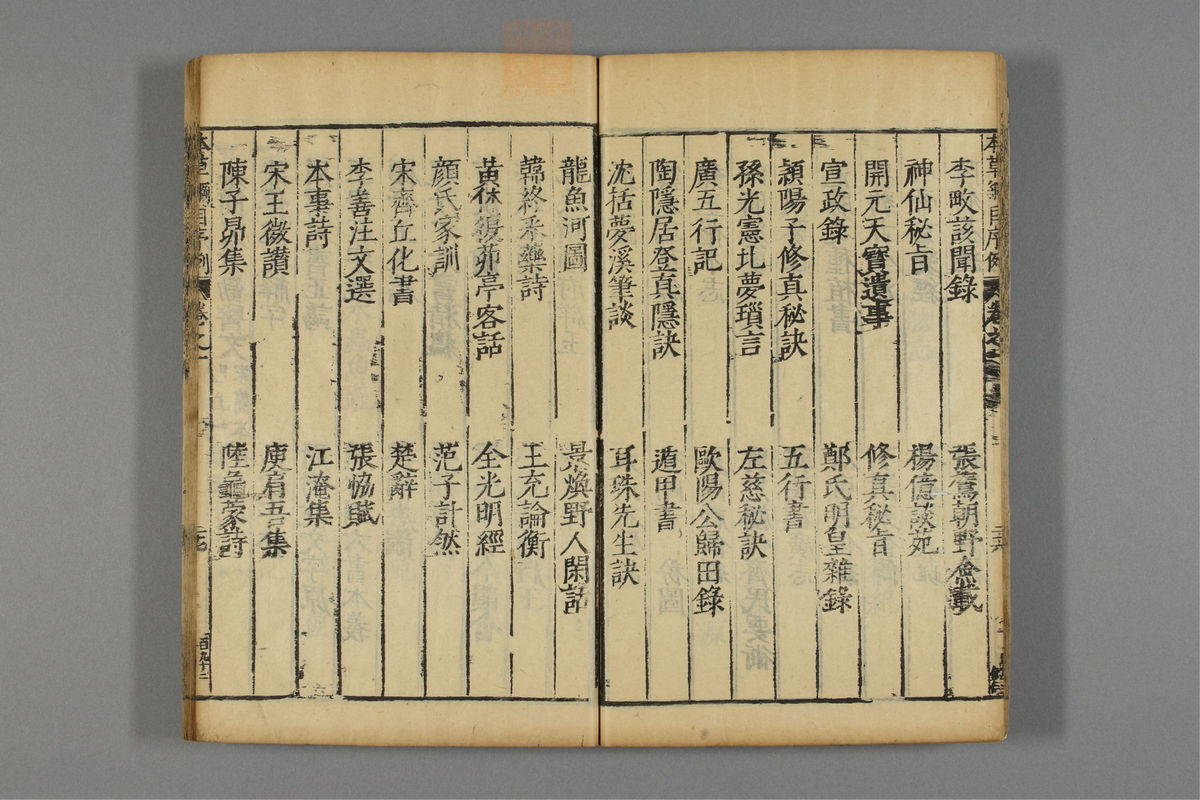 李畋該聞錄
張鷟朝野僉載
神仙秘旨
楊億談苑
開元天寶遺事
修真秘旨
宣政錄
鄭氏明皇雜錄
潁陽子修真秘訣
五行書
孫光憲北夢瑣言
左慈秘訣
廣五行記
歐陽公歸田錄
陶隱居登真隱訣
遁甲書
沈括夢溪筆談
耳珠先生訣
龍魚河圖
景煥野人閑話
韓終采藥詩
王充論衡
黃休復茆亭客話
金光明經
顏氏家訓
范子計然
宋齊丘化書
楚辭
李善注文選
張協賦
本事詩
江淹集
宋王微讚
庾肩吾集
陳子昴集
陸龜蒙詩
本草綱目序例
卷之一